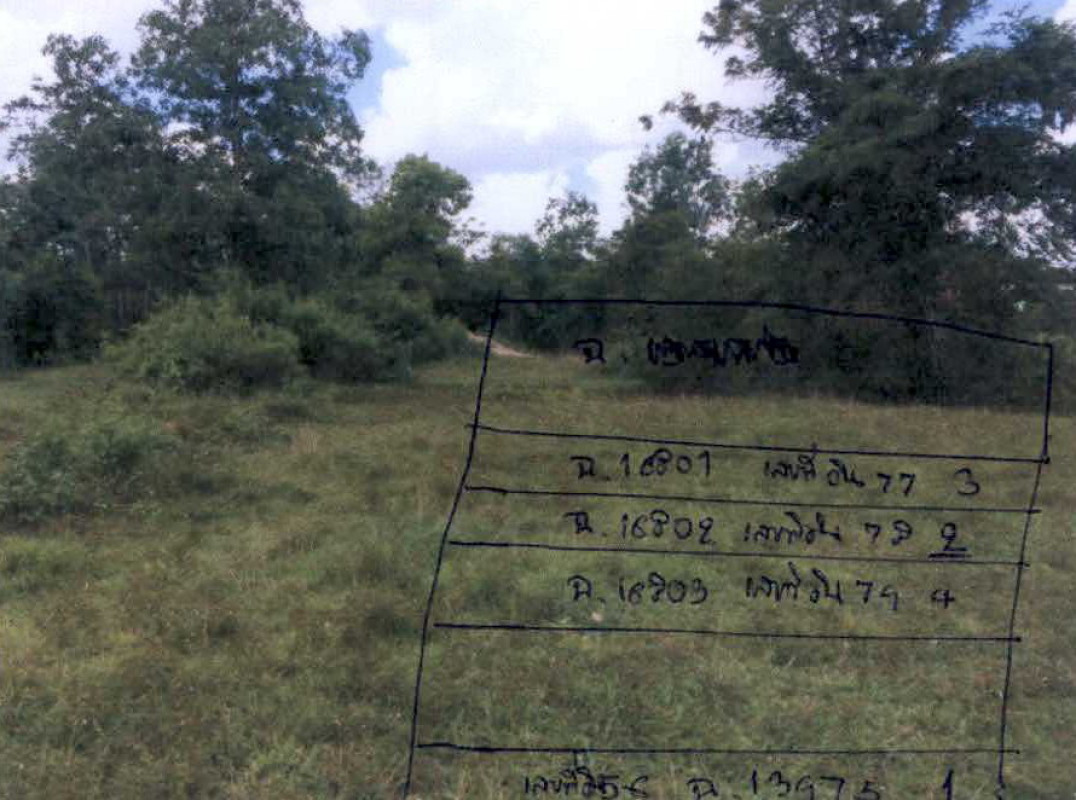 ฉ.
ฉ.16801 เลขที่ดิน 77 3
ฉ.16802 เลขที่ดิน 78 2
ฉ.16803 เลขที่ดิน 79 4
ฉ.13975 1